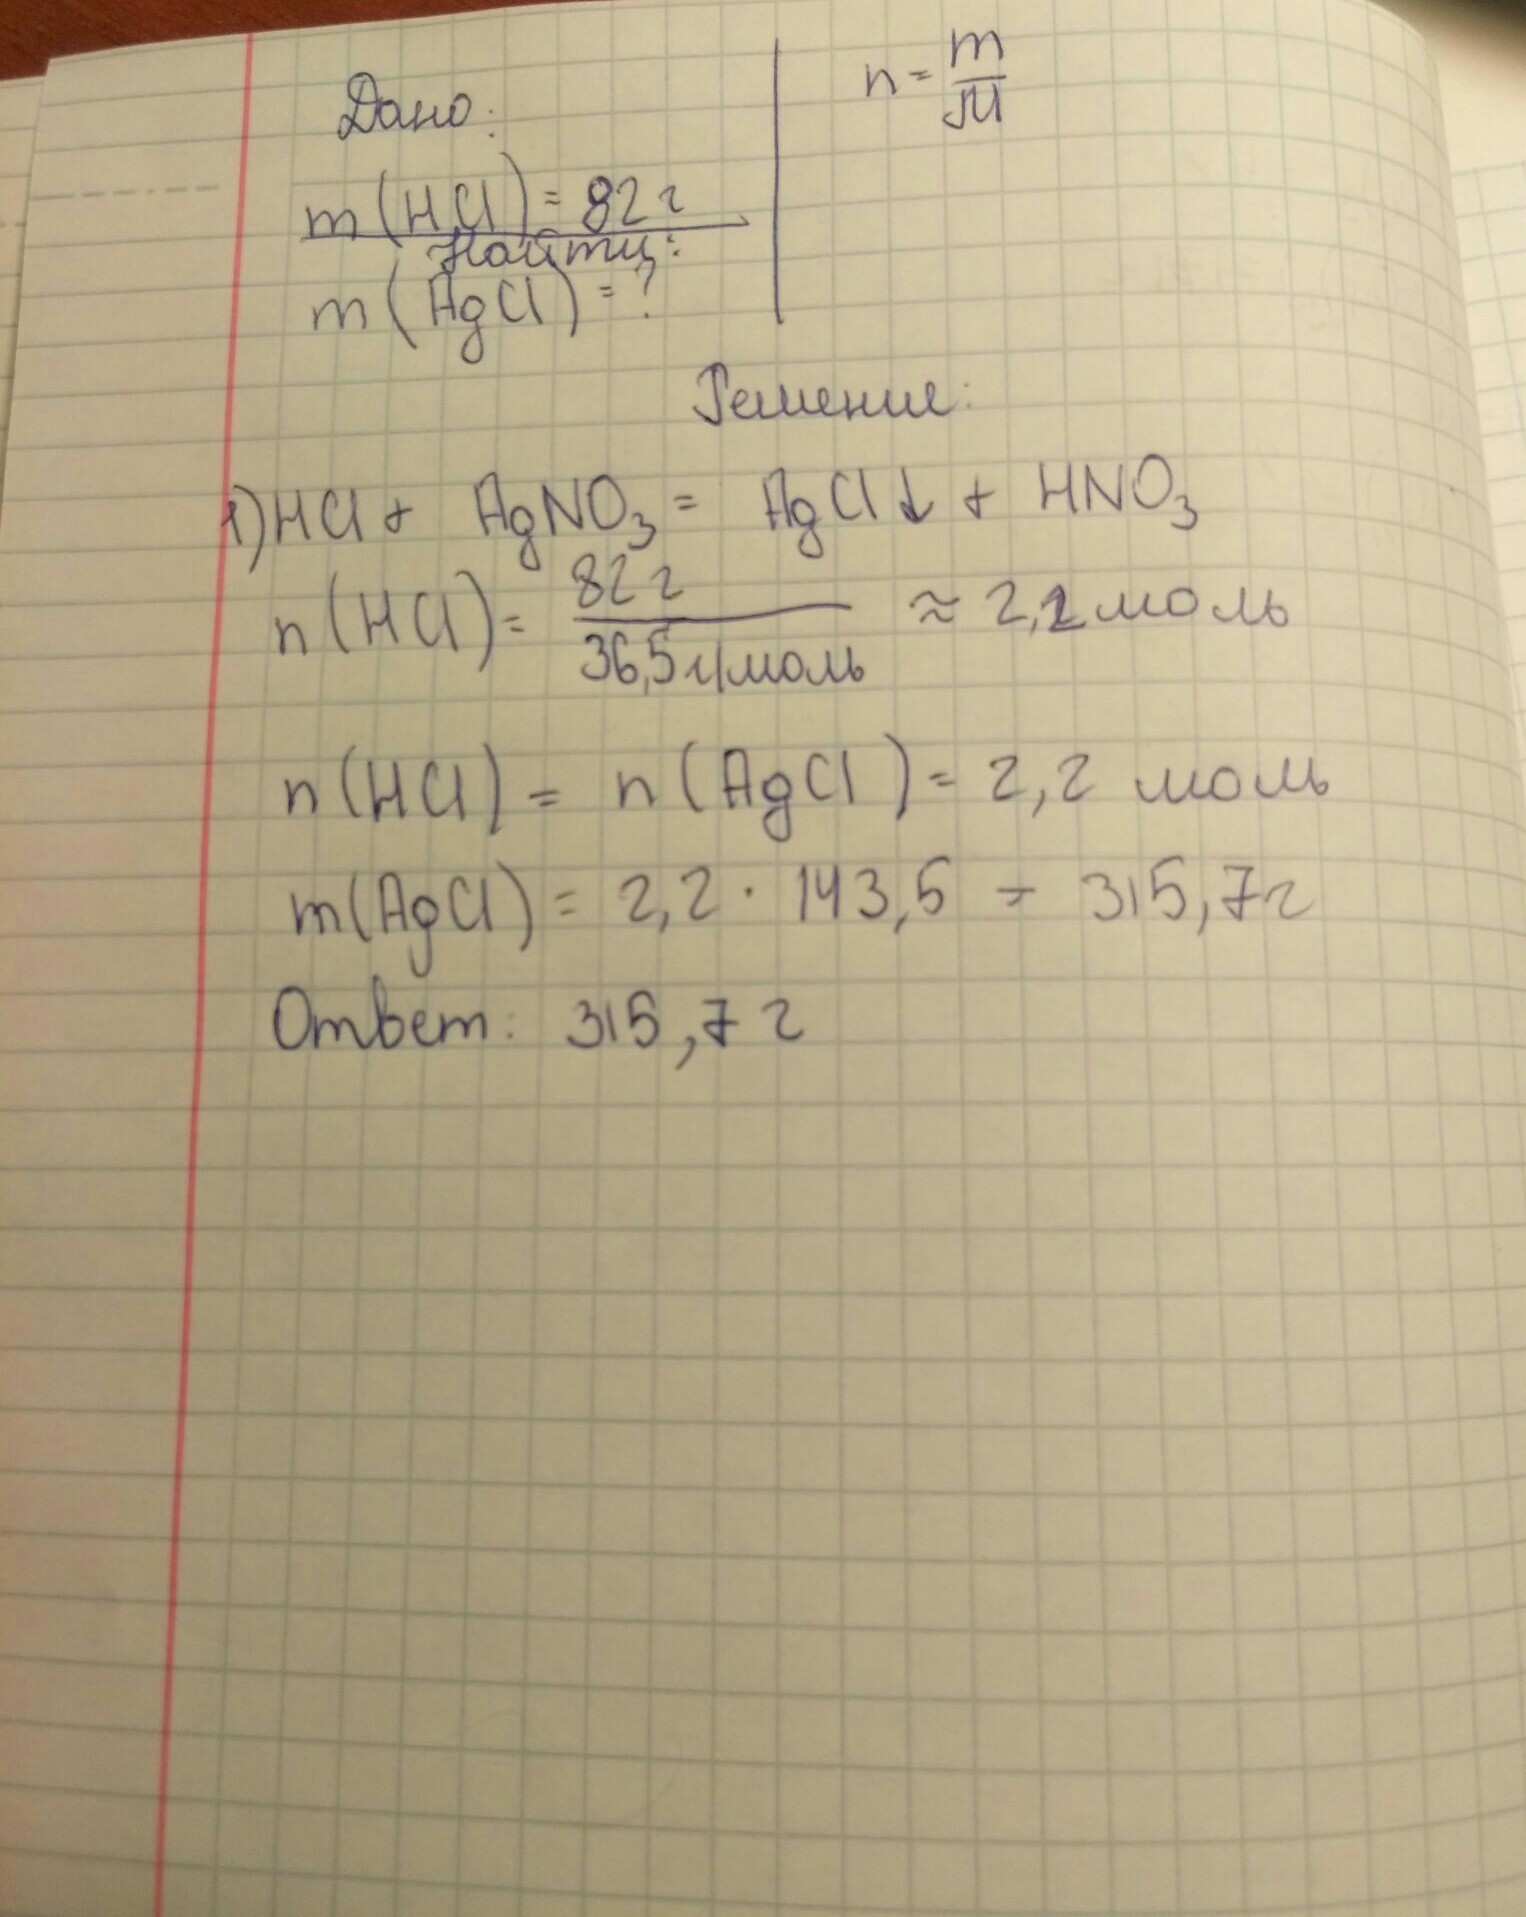 Дано:
m(HCl) = 82 г
Найти:
m(AgCl) = ?
n = m/M
Решение:
1) HCl + AgNO₃ = AgCl↓ + HNO₃
n(HCl) = 82 г / 36,5 г/моль ≈ 2,2 моль
n(HCl) = n(AgCl) = 2,2 моль
m(AgCl) = 2,2 · 143,5 = 315,7 г
Ответ: 315,7 г